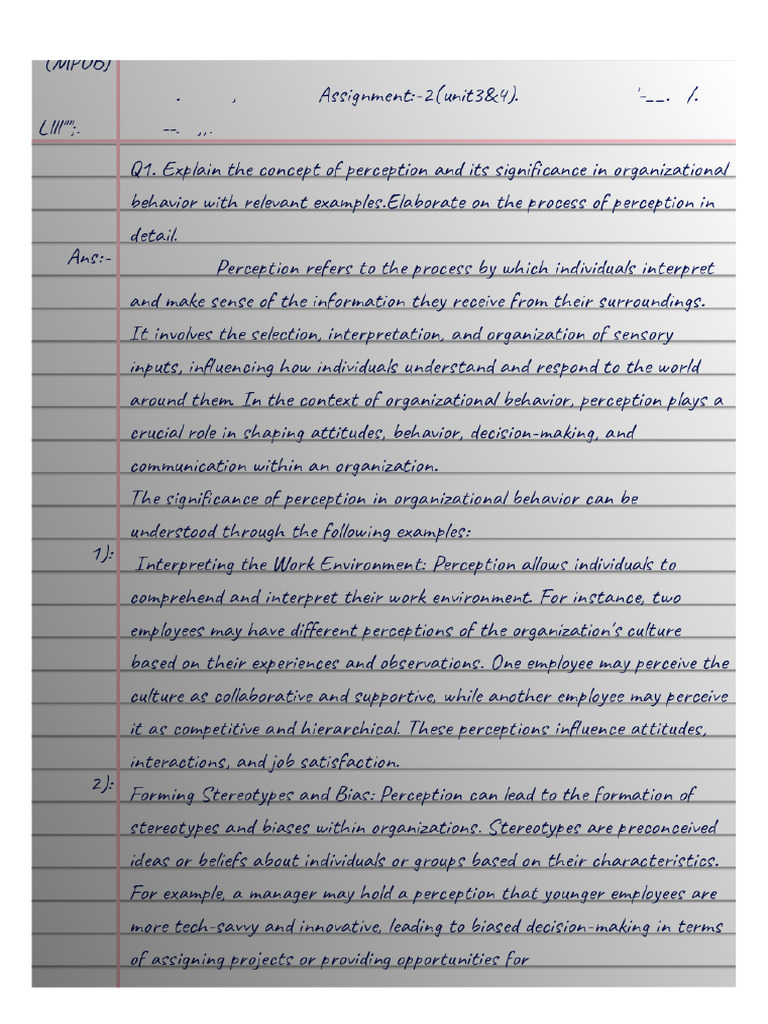 (MPOB)
Assignment:-2(unit3&4).
Q1. Explain the concept of perception and its significance in organizational
behavior with relevant examples.Elaborate on the process of perception in
detail.
Ans:-
Perception refers to the process by which individuals interpret
and make sense of the information they receive from their surroundings.
It involves the selection, interpretation, and organization of sensory
inputs, influencing how individuals understand and respond to the world
around them. In the context of organizational behavior, perception plays a
crucial role in shaping attitudes, behavior, decision-making, and
communication within an organization.
The significance of perception in organizational behavior can be
understood through the following examples:
1): Interpreting the Work Environment: Perception allows individuals to
comprehend and interpret their work environment. For instance, two
employees may have different perceptions of the organization's culture
based on their experiences and observations. One employee may perceive the
culture as collaborative and supportive, while another employee may perceive
it as competitive and hierarchical. These perceptions influence attitudes,
interactions, and job satisfaction.
2): Forming Stereotypes and Bias: Perception can lead to the formation of
stereotypes and biases within organizations. Stereotypes are preconceived
ideas or beliefs about individuals or groups based on their characteristics.
For example, a manager may hold a perception that younger employees are
more tech-savvy and innovative, leading to biased decision-making in terms
of assigning projects or providing opportunities for